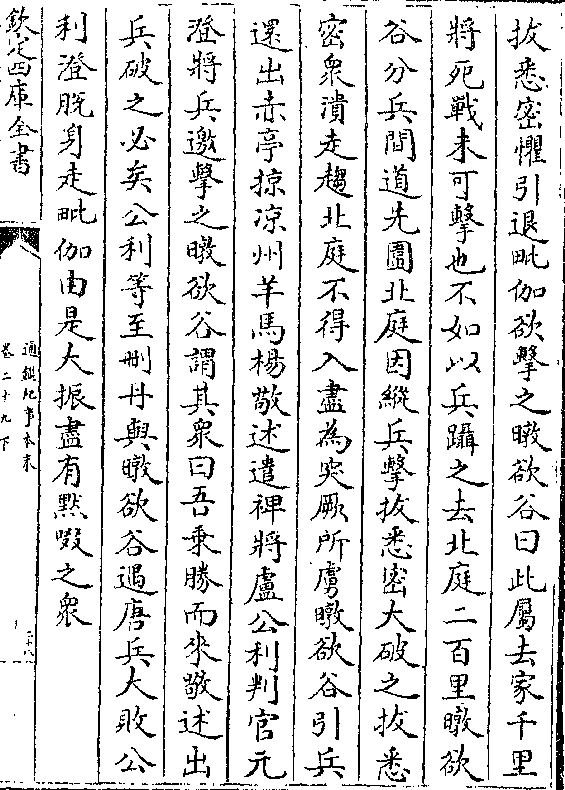 拔悉密懼引退毗伽欲擊之暾欲谷曰此屬去家千里
將死戰未可擊也不如以兵躡之去北庭二百里暾欲
谷分兵間道先圍北庭因縱兵擊拔悉密大破之拔悉
密衆潰走趨北庭不得入盡為突厥所虜暾欲谷引兵
還出赤亭掠凉州羊馬楊敬述遣裨將盧公利判官元
澄將兵邀擊之暾欲谷謂其衆曰吾乗勝而來敬述出
兵破之必矣公利等至刪丹與暾欲谷遇唐兵大敗公
利澄脱身走毗伽由是大振盡有黙啜之衆
欽定四庫全書
通鑑紀事本末
卷二十九下